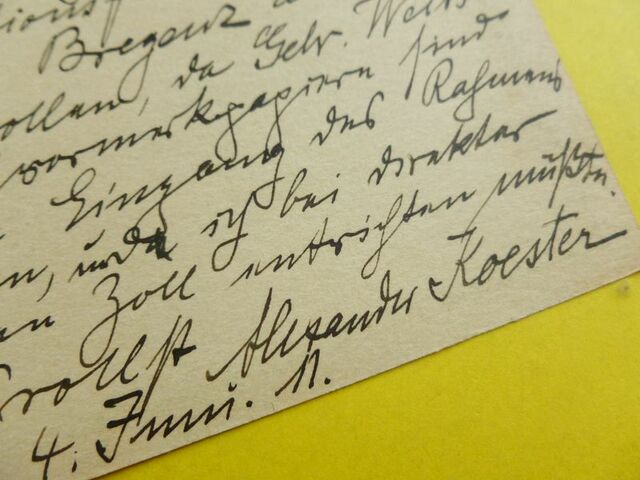 Bregenz
ollen, da Gebr. Weiss
vormerkpapiere sind
Eingang des Rahmens
n, und da ich bei direkter
en Zoll entrichten müßte.
rollst Alexander Koester
4. Juni. 11.